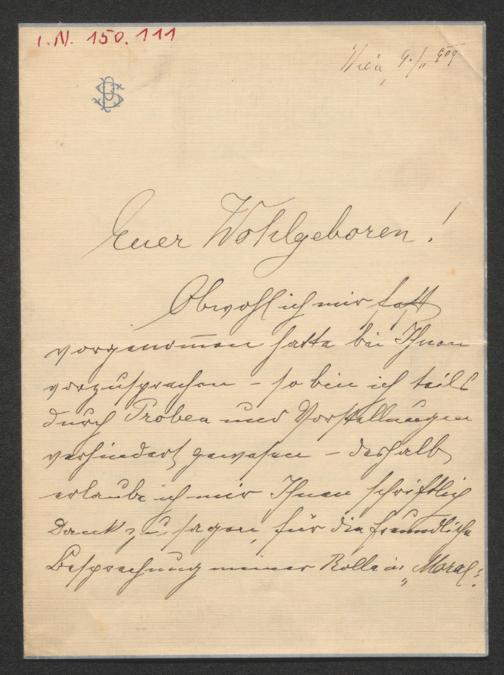 I.N. 150.111
Wien, 9./11 909
BS
Euer Wohlgeboren!
Obwohl ich mir fest
vorgenommen hatte bei Ihnen
vorzusprechen – so bin ich teils
durch Proben und Vorstellungen
verhindert gewesen – deshalb
erlaube ich mir Ihnen schriftlich
Dank zu sagen für die freundliche
Besprechung meiner Rolle in „Moral“